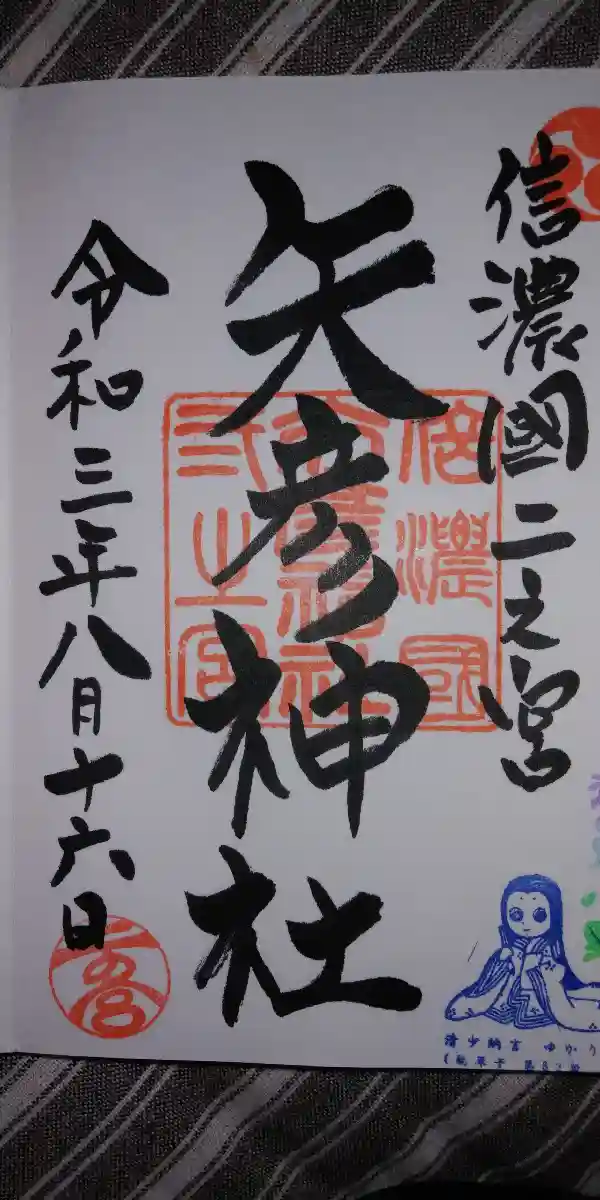 信濃國二之宮
矢彦神社
令和三年八月十六日
信濃國
矢彦神社
弐之宮
清少納言 ゆかり